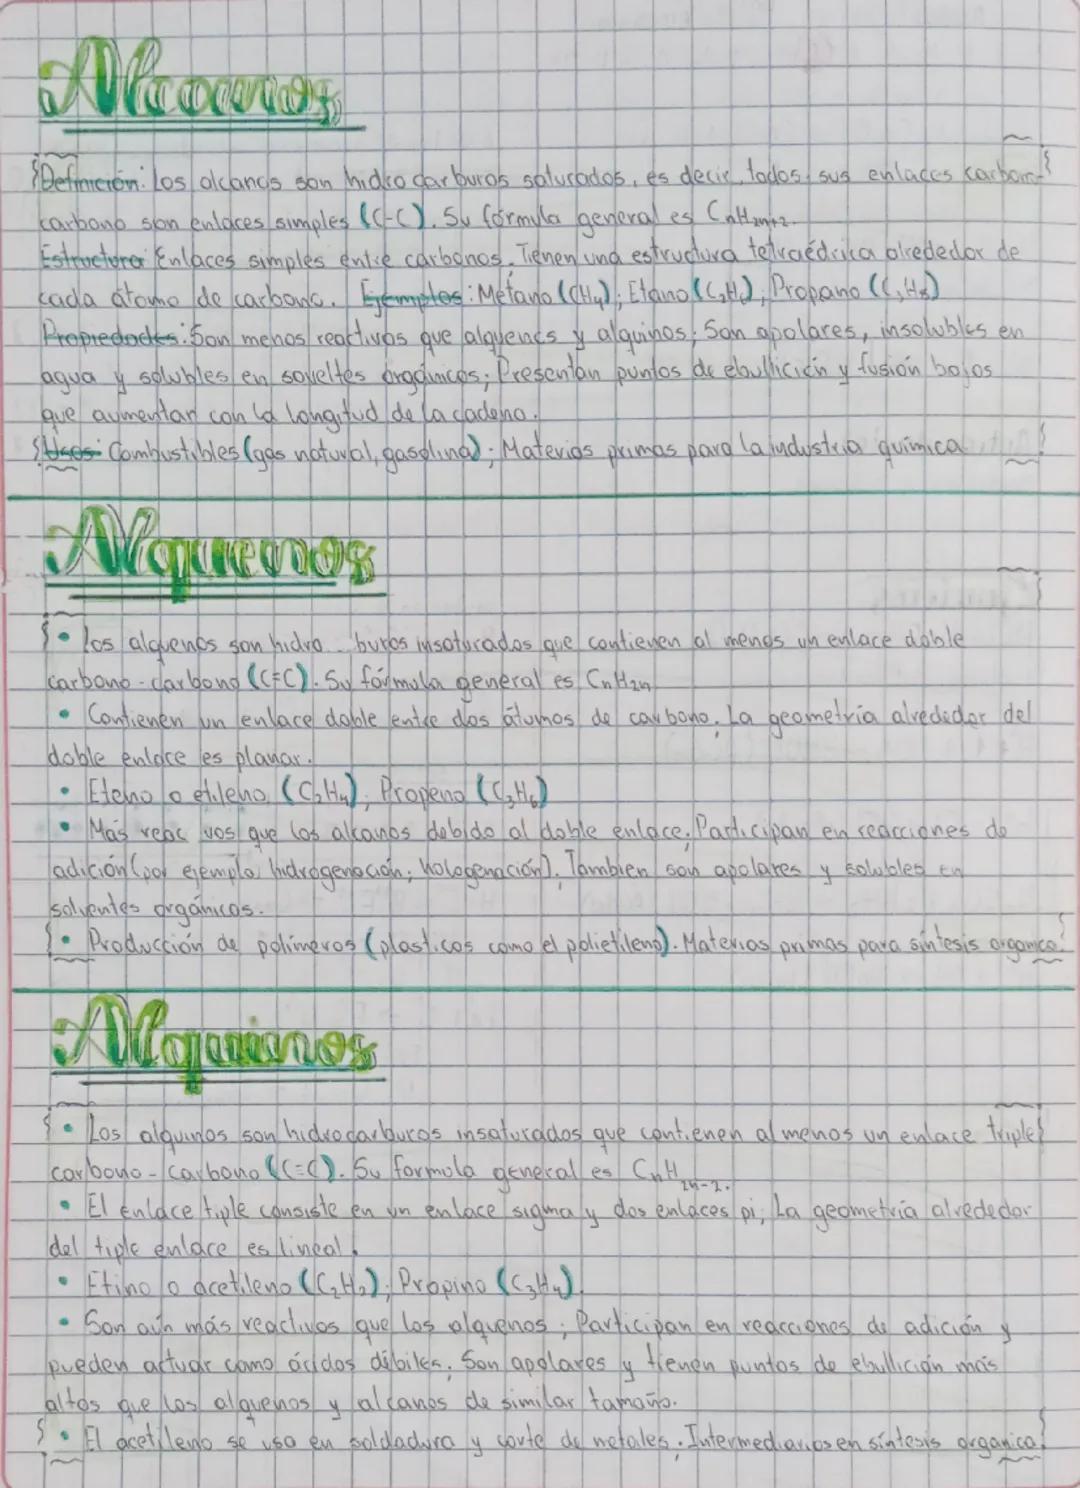 Alcanos
Definición: Los alcanos son hidrocarburos saturados, es decir, todos sus enlaces carbono-
carbono son enlaces simples (C-C). Su fórmula general es CnH2n+2.
Estructura: Enlaces simples entre carbonos. Tienen una estructura tetraédrica alrededor de
cada átomo de carbono. Ejemplos: Metano (CH4); Etano (C2H6); Propano (C3H8)
Propiedades: Son menos reactivos que alquenos y alquinos; Son apolares, insolubles en
agua y solubles en soveltes orgánicos; Presentan puntos de ebullición y fusión bajos
que aumentan con la longitud de la cadena.
Usos: Combustibles (gas natural, gasolina); Materias primas para la industria química
Alquenos
• Los alquenos son hidro buros insaturados que contienen al menos un enlace doble
carbono-carbono (C=C). Su fórmula general es CnH2n
• Contienen un enlace doble entre dos átomos de carbono. La geometría alrededor del
doble enlace es planar.
• Eteno o etileno (C2H4); Propeno (C3H6)
• Más reac vos que los alcanos debido al doble enlace; Participan en reacciones de
adición (por ejemplo, hidrogenación; halogenación). Tambien son apolares y solubles en
solventes orgánicos.
• Producción de polímeros (plasticos como el polietileno). Materias primas para síntesis organica.
Alquinos
• Los alquinos son hidrocarburos insaturados que contienen al menos un enlace triple
carbono-carbono (C≡C). Su formula general es CnH2n-2.
• El enlace tiple consiste en un enlace sigma y dos enlaces pi; La geometría alrededor
del tiple enlace es lineal.
• Etino o acetileno (C2H2); Propino (C3H4)
• Son aún más reactivos que los alquenos; Participan en reacciones de adición y
pueden actuar como ácidos débiles. Son apolares y tienen puntos de ebullición más
altos que los alquenos y alcanos de similar tamaño.
• El acetileno se usa en soldadura y corte de metales. Intermediarios en síntesis organica.